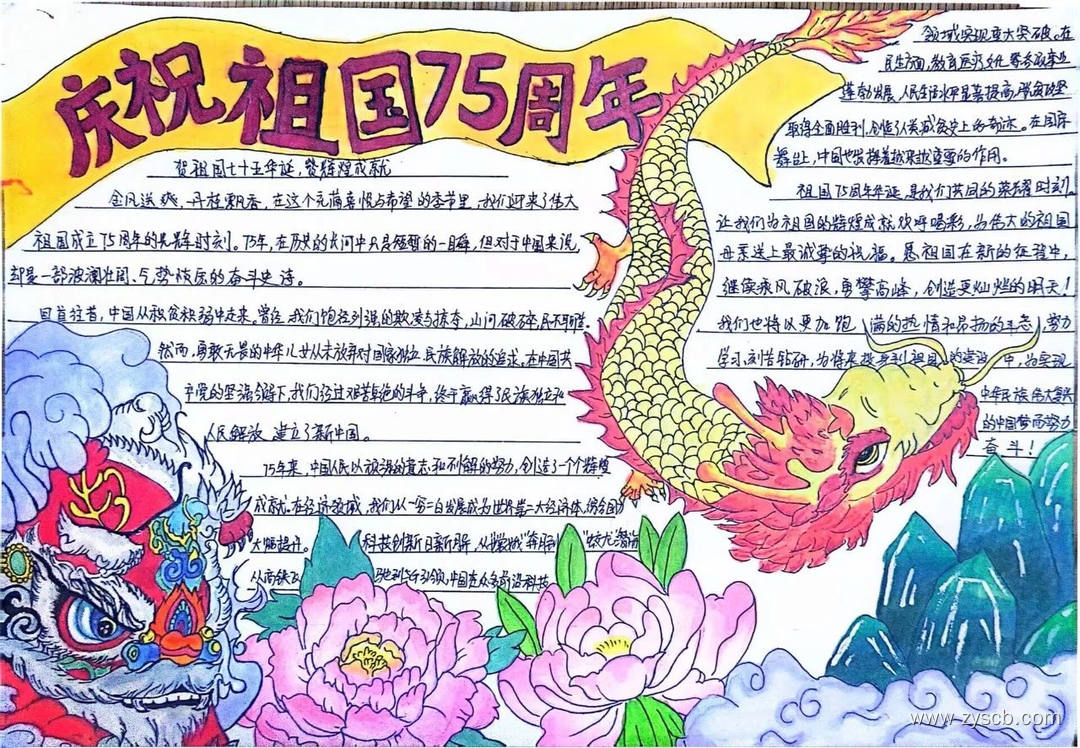 庆祝祖国75周年
贺祖国七十五华诞,赞辉煌成就
金风送爽,丹桂飘香,在这个充满喜悦与希望的季节里,我们迎来了伟大
祖国成立75周年的光辉时刻。75年,在历史的长河中只是短暂的一瞬,但对于中国来说,
却是一部波澜壮阔、气势恢宏的奋斗史诗。
回首往昔,中国从积贫积弱中走来,曾经,我们饱经列强的欺凌与掠夺,山河破碎,民不聊生。
然而,勇敢无畏的中华儿女从未放弃对国家独立、民族解放的追求,在中国共
产党的坚强领导下,我们经过艰苦卓绝的斗争,终于赢得了民族独立和
人民解放,建立了新中国。
75年来,中国人民以顽强的意志和不懈的努力,创造了一个个辉煌
成就。在经济领域,我们从一穷二白发展成为世界第二大经济体,综合国力
大幅提升。科技创新日新月异,从"嫦娥"奔月到"蛟龙"潜海
从高铁飞驰到5G引领,中国在众多前沿科技
领域实现重大突破。在
民生方面,教育医疗文化等各项事业
蓬勃发展,人民生活水平显著提高,脱贫攻坚
取得全面胜利,创造了人类减贫史上的奇迹。在国际
舞台上,中国也发挥着越来越重要的作用。
祖国75周年华诞,是我们共同的荣耀时刻,
让我们为祖国的辉煌成就欢呼喝彩,为伟大的祖国
母亲送上最诚挚的祝福。愿祖国在新的征程中,
继续乘风破浪,勇攀高峰,创造更灿烂的明天!
我们也将以更加饱满的热情和昂扬的斗志,努力
学习,刻苦钻研,为将来投身到祖国的建设中,为实现
中华民族伟大复兴
的中国梦而努力
奋斗!
www.zyscb.com